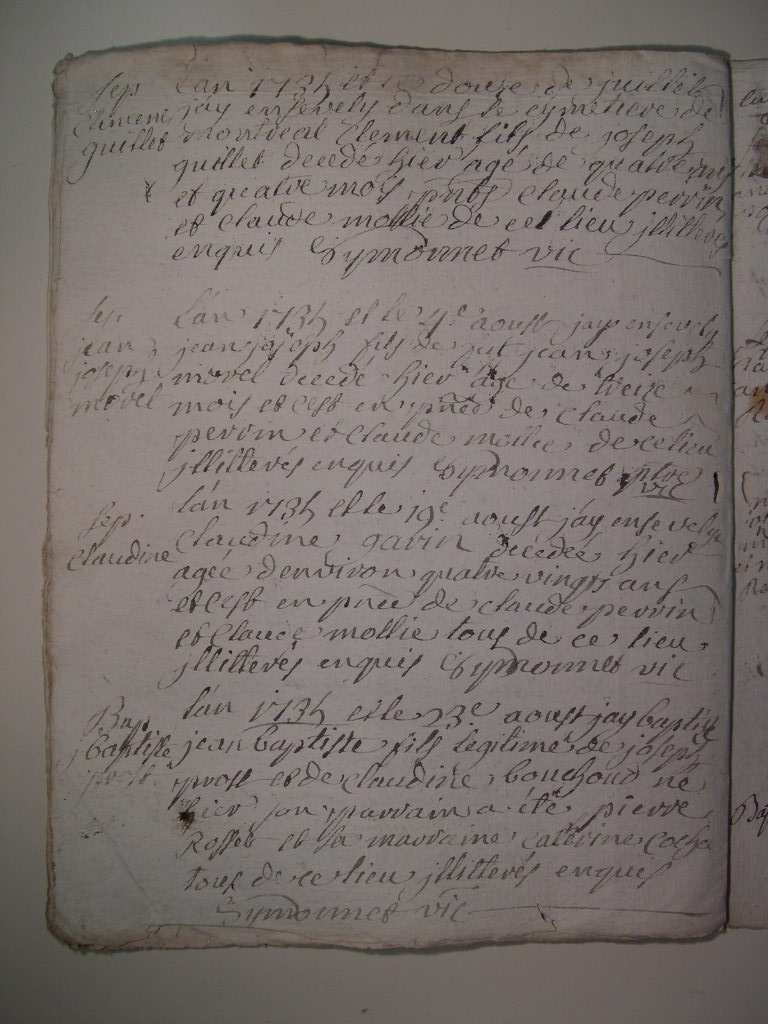 Sep
Clement
guillet
Lan 1734 et le douze de juillet
jay ensevely dans le cymetiere de
montreal Clement fils de joseph
guillet decedé hier agé de quatre ans
et quatre mois pnts Claude perrin
et Claude mollie de ce lieu jllitterés
enquis Symonnet vic
Sep.
jean
joseph
morel
Lán 1734 et le 4e aoust jay ensevely
jean joseph fils de jean joseph
morel decedé hier age de treize
mois et cest en pnce de Claude
perrin et Claude mollie de ce lieu
jllitterés enquis Symonnet ptre
vic
Sep.
Claudine
lán 1734 et le 19e aoust jáy ensevelye
Claudine gavin decedeé hier
ageé denviron quatre vingts ans
et cest en pnce de claude perrin
et Claude mollie tous de ce lieu
jllitterés enquis Symonnet vic
Bap.
jbaptiste
prost
lán 1734 et le 23e aoust jay baptisé
jean baptiste fils legitime de joseph
prost et de claudine bouchoud né
hier son parrain a été pierre
Rosset et sa marraine caterine
tous de ce lieu jllitterés enquis
Symonnet vic